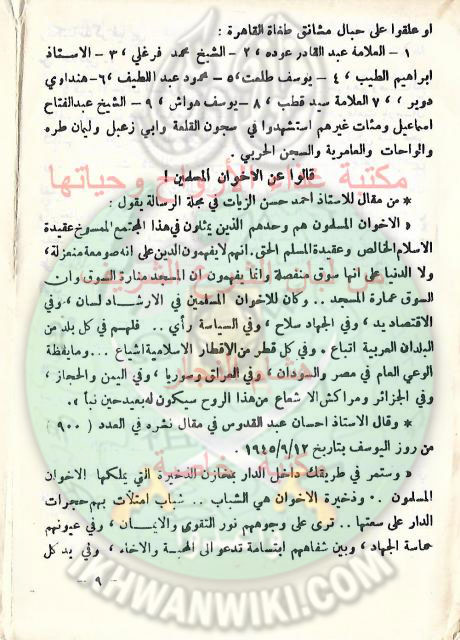 او علقوا على حبال مشانق طغاة القاهرة :
١ – العلامة عبد القادر عوده ، ٢ – الشيخ محمد فرغلي ، ٣ – الاستاذ
ابراهيم الطيب ، ٤ – يوسف طلعت ، ٥ – محمود عبد اللطيف ، ٦ – هنداوي
دوير ، ، ٧ العلامة سيد قطب ، ٨ – يوسف هواش ، ٩ – الشيخ عبدالفتاح
اسماعيل ومئات غيرهم استشهدوا في سجون القلعة وابي زعبل وليمان طره
والواحات والعامرية والسجن الحربي .
قالوا عن الاخوان المسلمين !
مكتبة غذاء الأرواح وحياتها
* من مقال للاستاذ احمد حسن الزيات في مجلة الرسالة يقول :
« الاخوان المسلمون هم وحدهم الذين يمثلون في هذا المجتمع الممسوخ عقيدة
الاسلام الخالص وعقيدة المسلم الحق . انهم لا يفهمون الدين على انه صومعة منعزلة ،
ولا الدنيا على انها سوق منفصلة وانما يفهمون ان المسجد منارة السوق وان
السوق عمارة المسجد .. وكان للاخوان المسلمين في الارشاد لسان ، وفي
الاقتصاد يد ، وفي الجهاد سلاح ، وفي السياسة رأي .. فلهم في كل بلد من
البلدان العربية اتباع ، وفي كل قطر من الاقطار الاسلامية اشياع ... وما يقظة
الوعي العام في مصر والسودان ، وفي العراق وسوريا ، وفي اليمن والحجاز ،
وفي الجزائر ومراكش الا شعاع من هذا الروح سيكون له بعد حين نبأ » .
* وقال الاستاذ احسان عبد القدوس في مقال نشره في العدد ( ٩٠٠ )
من روز اليوسف بتاريخ ١٩٤٥/٩/١٣ .
« وستمر في طريقك داخل الدار بمخازن الذخيرة التي يملكها الاخوان
المسلمون .. وذخيرة الاخوان هي الشباب .. شباب امتلأت بهم حجرات
الدار على سعتها .. ترى على وجوههم نور التقوى والايمان ، وفي عيونهم
حماسة الجهاد ، وبين شفاههم ابتسامة تدعو الى المحبة والاخاء ، وفي يد كل
– ٩ –
IKHWANWIKI.COM